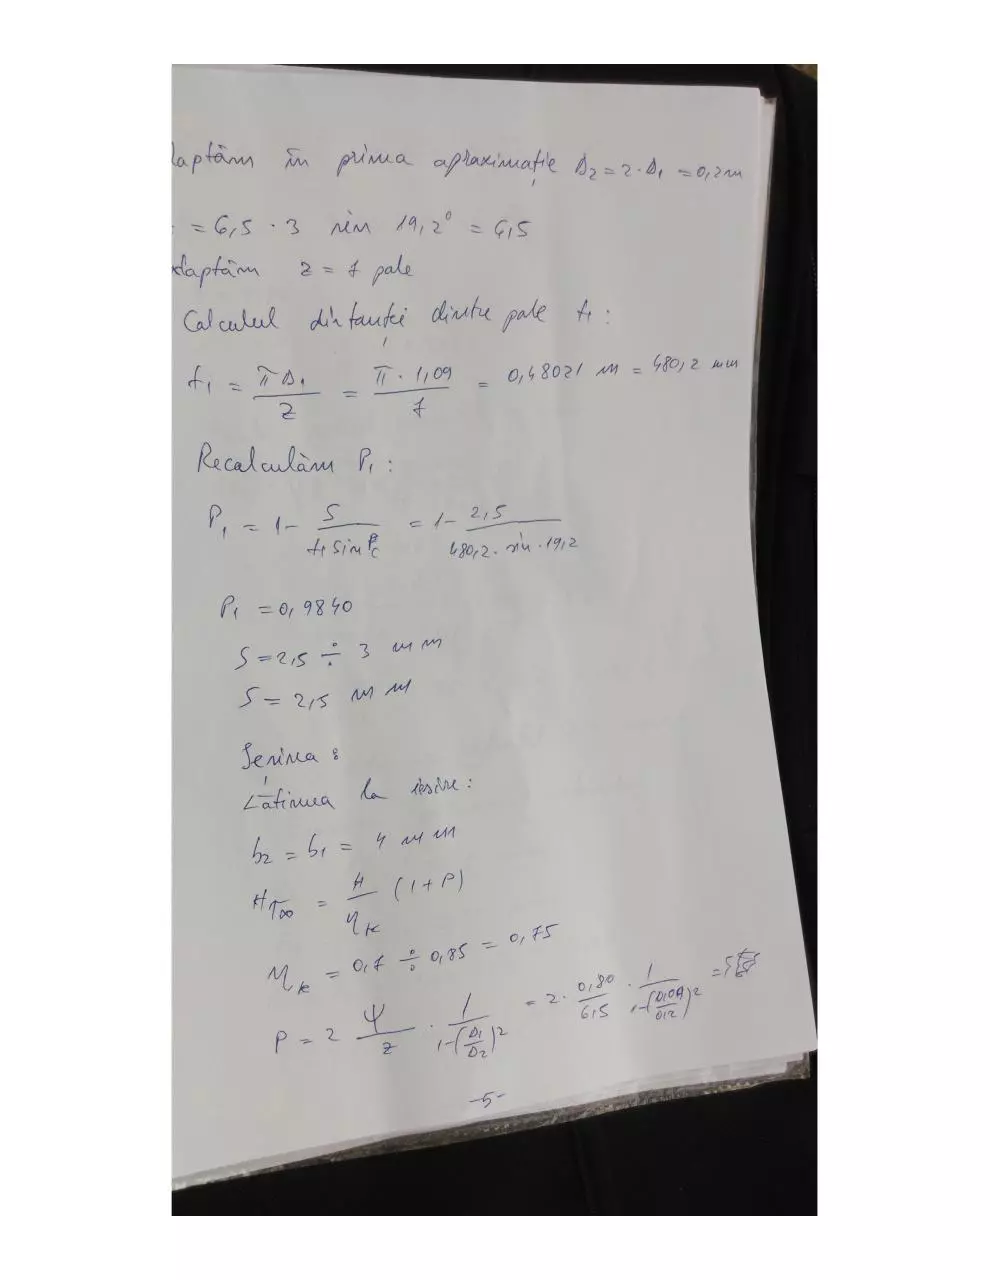 daptăm în prima aproximație D₂ = 2 · D₁ = 0,2 m
= 6,5 · 3 sin 19,2° = 6,5
Adaptăm z = 7 pale
Calculul distanței dintre pale t₁ :
t₁ = πD₁/z = π · 1,09/7 = 0,48021 m = 480,2 mm
Recalculăm P₁ :
P₁ = 1 - S/(t₁ sin βc) = 1 - 2,5/(480,2 · sin · 19,2)
P₁ = 0,9840
S = 2,5 ÷ 3 mm
S = 2,5 mm
Ieșirea :
Lățimea la ieșire :
b₂ = b₁ = 4 mm
HT∞ = H/ηk (1+P)
ηk = 0,7 ÷ 0,85 = 0,75
P = 2 ψ/z · 1/(1-(D₁/D₂)²) = 2 · 0,80/6,5 · 1/(1-(0,09/0,2)²) =
-5-